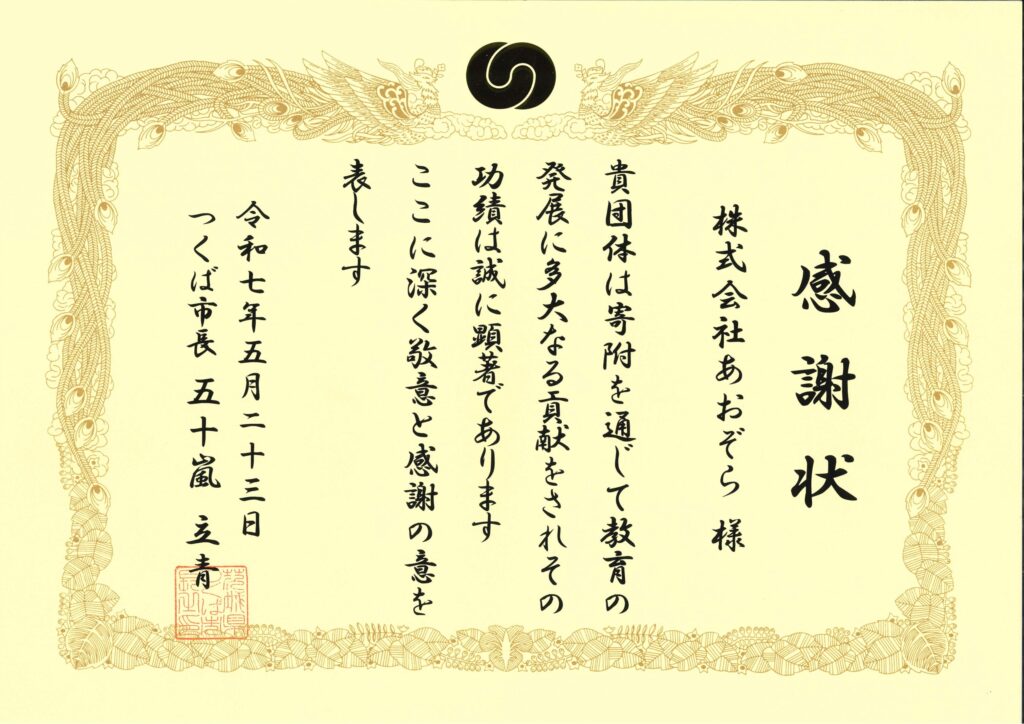 感謝状
株式会社あおぞら 様
貴団体は寄附を通じて教育の
発展に多大なる貢献をされその
功績は誠に顕著であります
ここに深く敬意と感謝の意を
表します
令和七年五月二十三日
つくば市長 五十嵐 立青